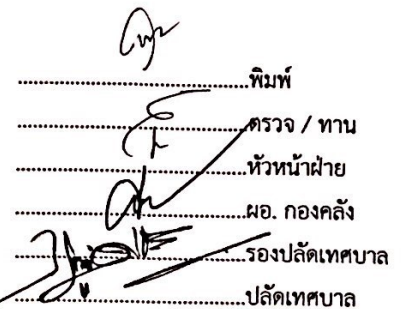 ....................................................พิมพ์
....................................................ตรวจ / ทาน
....................................................หัวหน้าฝ่าย
....................................................ผอ. กองคลัง
....................................................รองปลัดเทศบาล
....................................................ปลัดเทศบาล